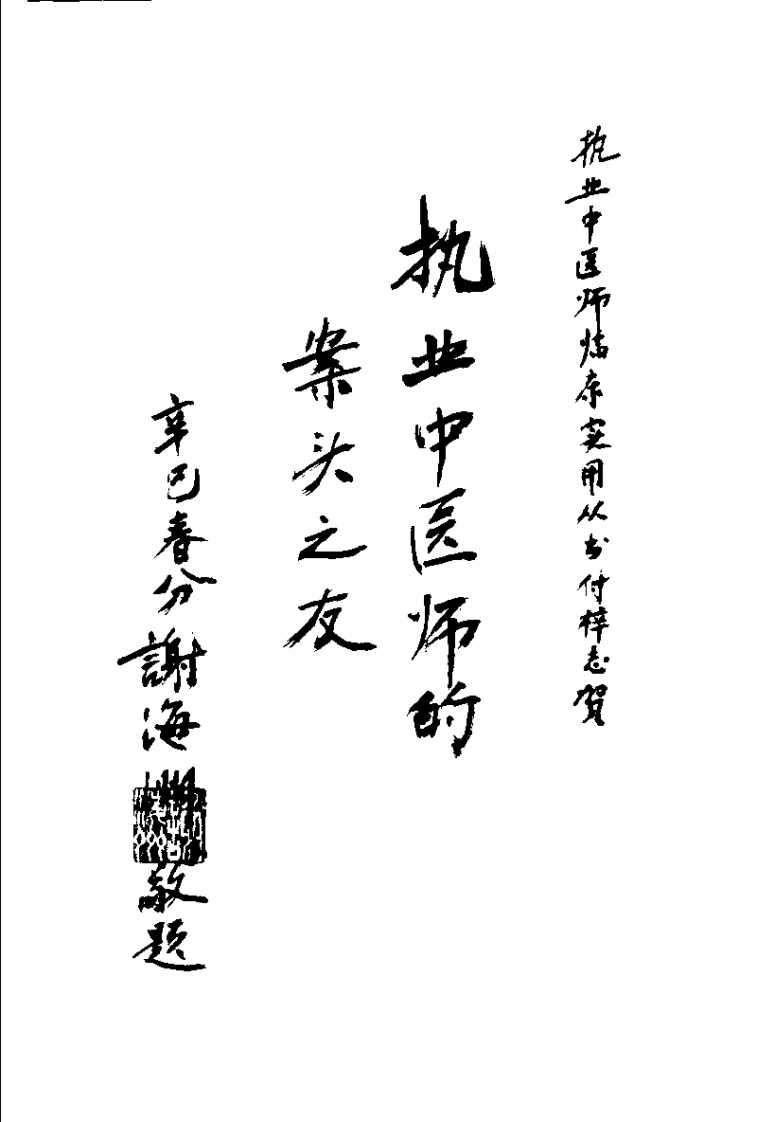 执业中医师临床实用丛书付梓志贺
执业中医师的
案头之友
辛巳春分謝海洲敬题